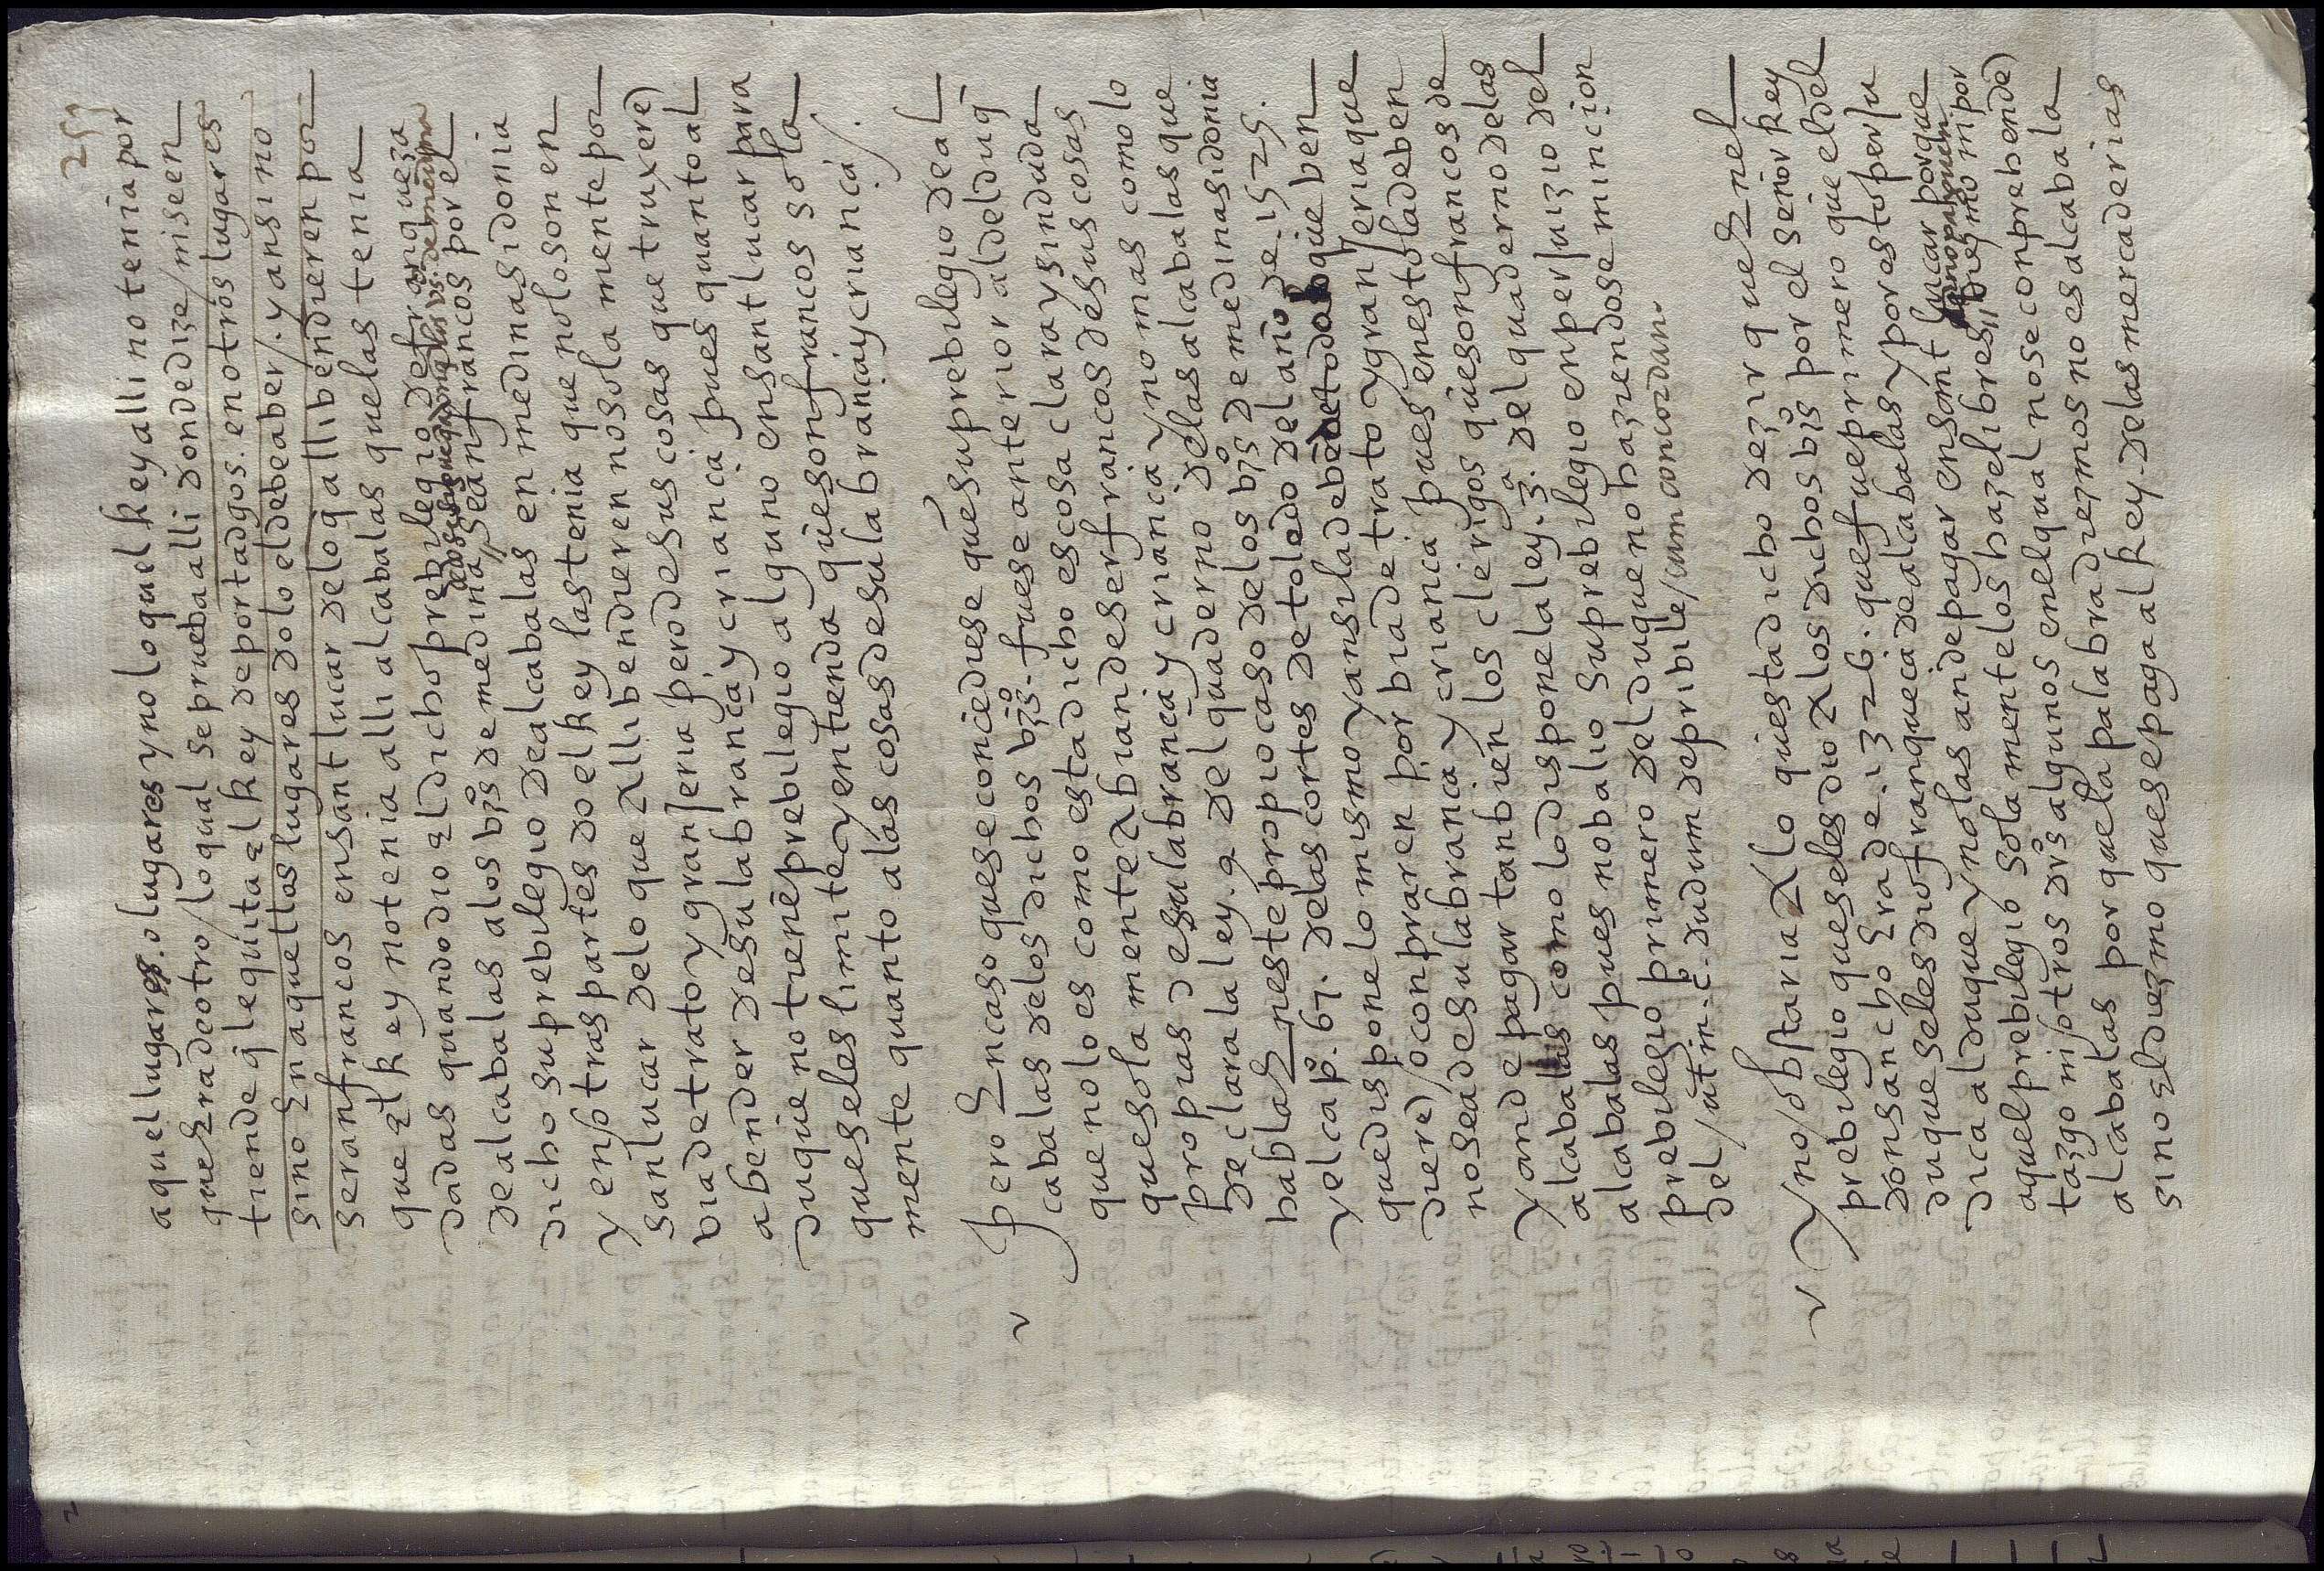 251
aquel lugar. o lugares y no lo quel Rey alli no tenia por
que Era de otro / lo qual se prueba alli donde dize / ni se en
tiende q̄ le quita El Rey de portadgos. en otros lugares
sino En aquellos lugares do lo el debe aber /. y ansi no
seran francos en sant lucar de lo q̄ alli bendieren por
que El Rey no tenia alli alcabalas que las tenia
dadas quando dio El dicho prebilegio de franqueza
de alcabalas a los bz̊s de medina // sean francos por el
dicho su prebilegio de alcabalas en medinasidonia
y en otras partes do el Rey las tenia que no lo son en
sanlucar de lo que Alli bendieren no sola mente por
via de trato y granjeria pero de sus cosas que truxerē
a bender de su labrança y criança pues quanto al
duque no tienē prebilegio alguno en sant lucar para
que se les limite y entienda q̄ueson francos sola
mente quanto a las cosas de su labrança y criança /.
pero En caso que se concediese que su prebilegio de al
cabalas de los dichos bz̊s. fuese anterior al del duq̄
que no lo es como esta dicho es cosa clara y sin duda
que sola mente Abian de ser francos de sus cosas
propias de su labrança y criança y no mas como lo
declara la ley. 9 del quaderno de las alcabalas que
habla En este propio caso de los bz̊s de medinasidonia
y el cap̊. 67. de las cortes de toledo del año de .1525.
que dispone lo mismo y ansi la debē de todo lo que ben
dierē / o conpraren por bia de trato y granjeria que
no sea de su labrança y criança pues en esto la deben
y an de pagar tanbien los clerigos que son francos de
alcabalas como lo dispone la ley. 3ª. del quaderno de las
alcabalas pues no balio su prebilegio en perjuizio del
prebilegio primero del duque no haziendose mincion
del / ut in. c̊. dudum de pribile / cum concordan.
Y no / obstaria A lo questa dicho dezir ques En el
prebilegio que se les dio A los dichos bz̊s por el señor Rey
don sancho Era de .1326. que fue primero que el del
duque se les dio franqueça de alcabalas y por esto per ju
dica al duque y no las an de pagar en sant lucar porque
aquel prebilegio sola mente los haze libres // diezmo ni por
tazgo ni / otros dr̊s algunos en el qual no se conprehendē
alcabalas por que la palabra diezmos no es alcabala
sino El diezmo que se paga al Rey de las mercaderias